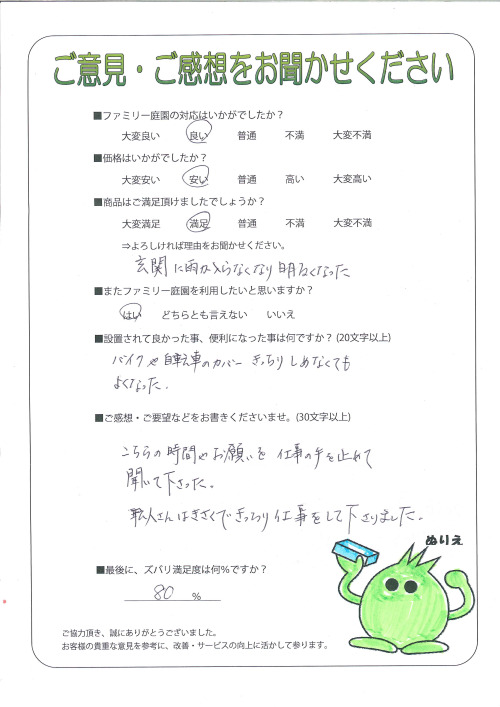 ご意見・ご感想をお聞かせください
■ファミリー庭園の対応はいかがでしたか？
大変良い 良い 普通 不満 大変不満
■価格はいかがでしたか？
大変安い 安い 普通 高い 大変高い
■商品はご満足頂けましたでしょうか？
大変満足 満足 普通 不満 大変不満
⇒よろしければ理由をお聞かせください。
玄関に雨が入らなくなり明るくなった
■またファミリー庭園を利用したいと思いますか？
はい どちらとも言えない いいえ
■設置されて良かった事、便利になった事は何ですか？(20文字以上)
バイクや自転車のカバーきっちりしめなくても
よくなった.
■ご感想・ご要望などをお書きくださいませ。(30文字以上)
こちらの時間やお願いを仕事の手を止めて
聞いて下さった。
職人さんはきさくできっちり仕事をして下さりました。
ぬりえ
■最後に、ズバリ満足度は何％ですか？
80 %
ご協力頂き、誠にありがとうございました。
お客様の貴重な意見を参考に、改善・サービスの向上に活かして参ります。